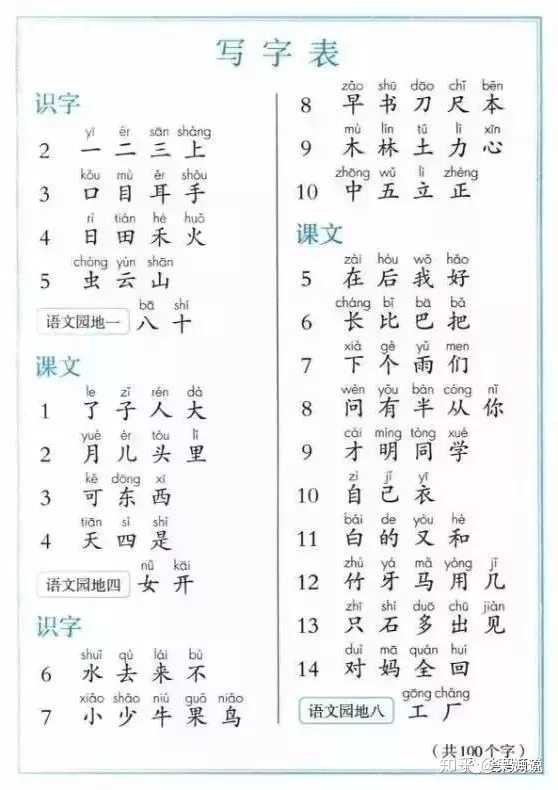 写字表
识字
yī èr sān shàng
2 一 二 三 上
kǒu mù ěr shǒu
3 口 目 耳 手
rì tián hé huǒ
4 日 田 禾 火
chóng yún shān
5 虫 云 山
bā shí
语文园地一 八 十
课文
le zǐ rén dà
1 了 子 人 大
yuè ér tóu lǐ
2 月 儿 头 里
kě dōng xī
3 可 东 西
tiān sì shì
4 天 四 是
nǚ kāi
语文园地四 女 开
识字
shuǐ qù lái bù
6 水 去 来 不
xiǎo shǎo niú guǒ niǎo
7 小 少 牛 果 鸟
zǎo shū dāo chǐ běn
8 早 书 刀 尺 本
mù lín tǔ lì xīn
9 木 林 土 力 心
zhōng wǔ lì zhèng
10 中 五 立 正
课文
zài hòu wǒ hǎo
5 在 后 我 好
cháng bǐ bā bǎ
6 长 比 巴 把
xià gè yǔ men
7 下 个 雨 们
wèn yǒu bàn cóng nǐ
8 问 有 半 从 你
cái míng tóng xué
9 才 明 同 学
zì jǐ yī
10 自 己 衣
bái de yòu hé
11 白 的 又 和
zhú yá mǎ yòng jǐ
12 竹 牙 马 用 几
zhǐ shí duō chū jiàn
13 只 石 多 出 见
duì mā quán huí
14 对 妈 全 回
gōng chǎng
语文园地八 工 厂
（共100个字）
知乎